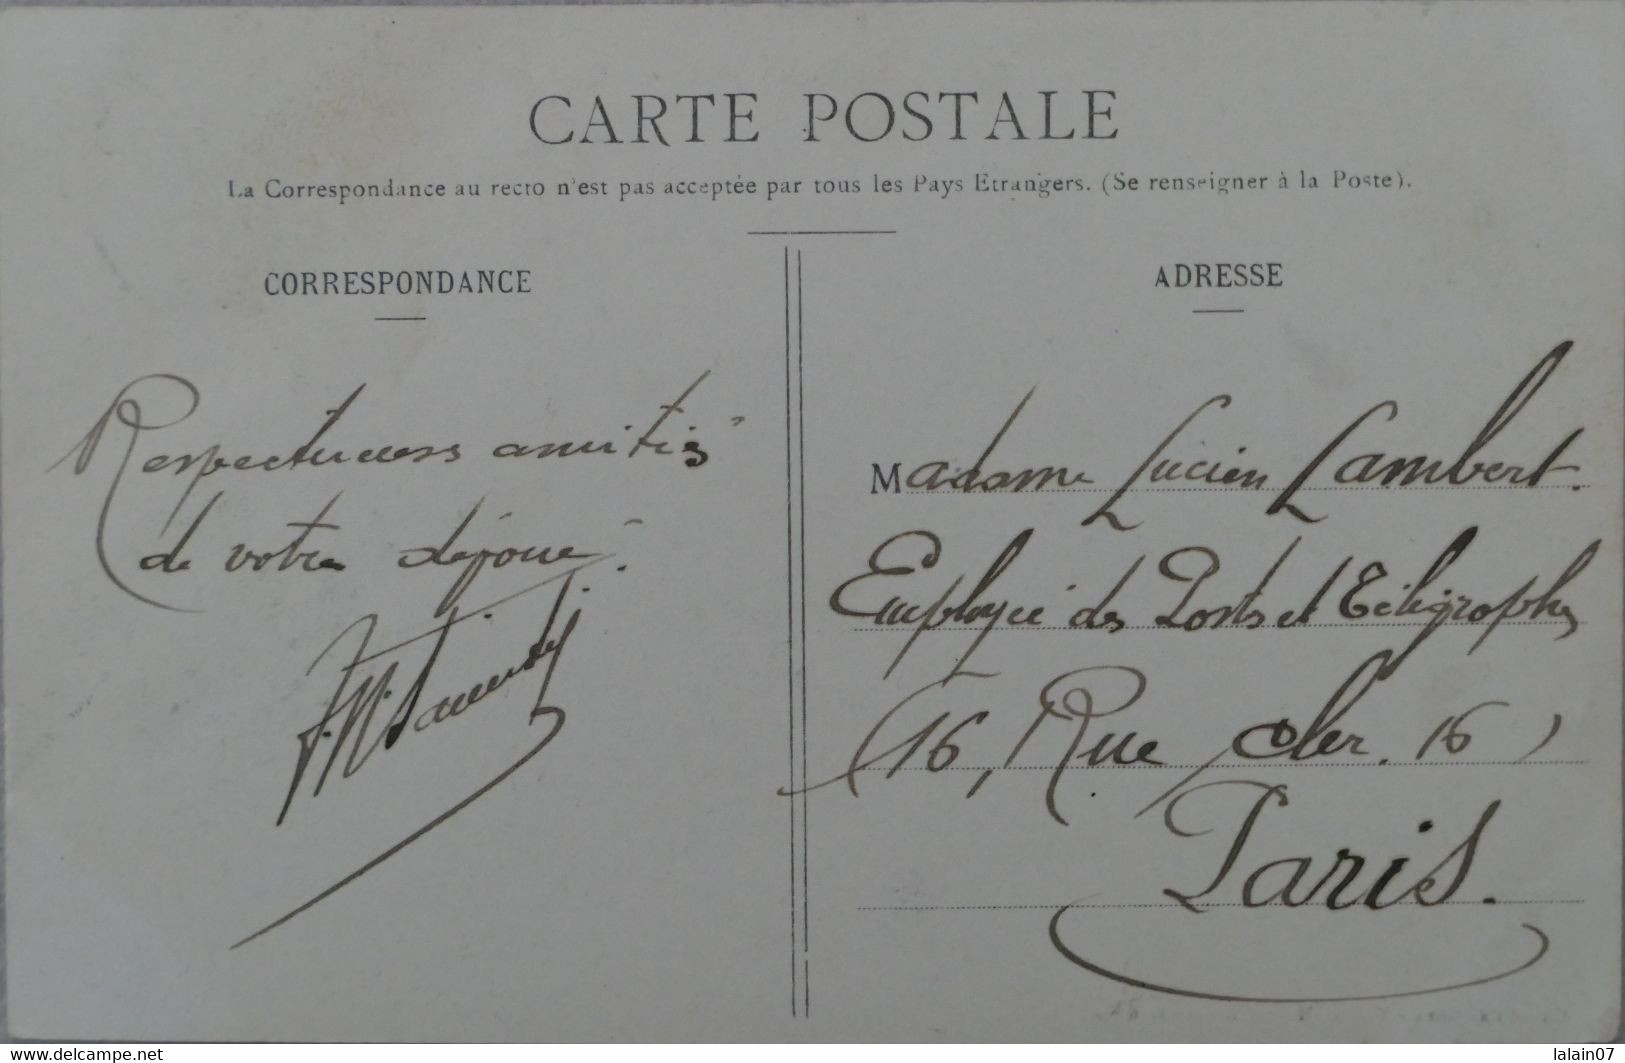 CARTE POSTALE
La Correspondance au recto n'est pas acceptée par tous les Pays Etrangers. (Se renseigner à la Poste).
CORRESPONDANCE
Respectueuses amitiés
de votre
ADRESSE
Madame Lucien Lambert.
Employée des Postes et Télégraphes
(16, Rue 16)
Paris.
www.delcampe.net
lalain07